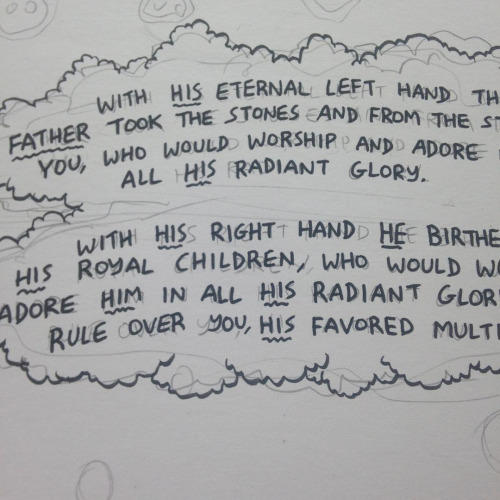 WITH HIS ETERNAL LEFT HAND
FATHER TOOK THE STONES AND FROM THE
YOU, WHO WOULD WORSHIP AND ADORE
ALL HIS RADIANT GLORY.
WITH HIS RIGHT HAND HE
HIS ROYAL CHILDREN, WHO WOULD
ADORE HIM IN ALL HIS RADIANT
RULE OVER YOU, HIS FAVORED